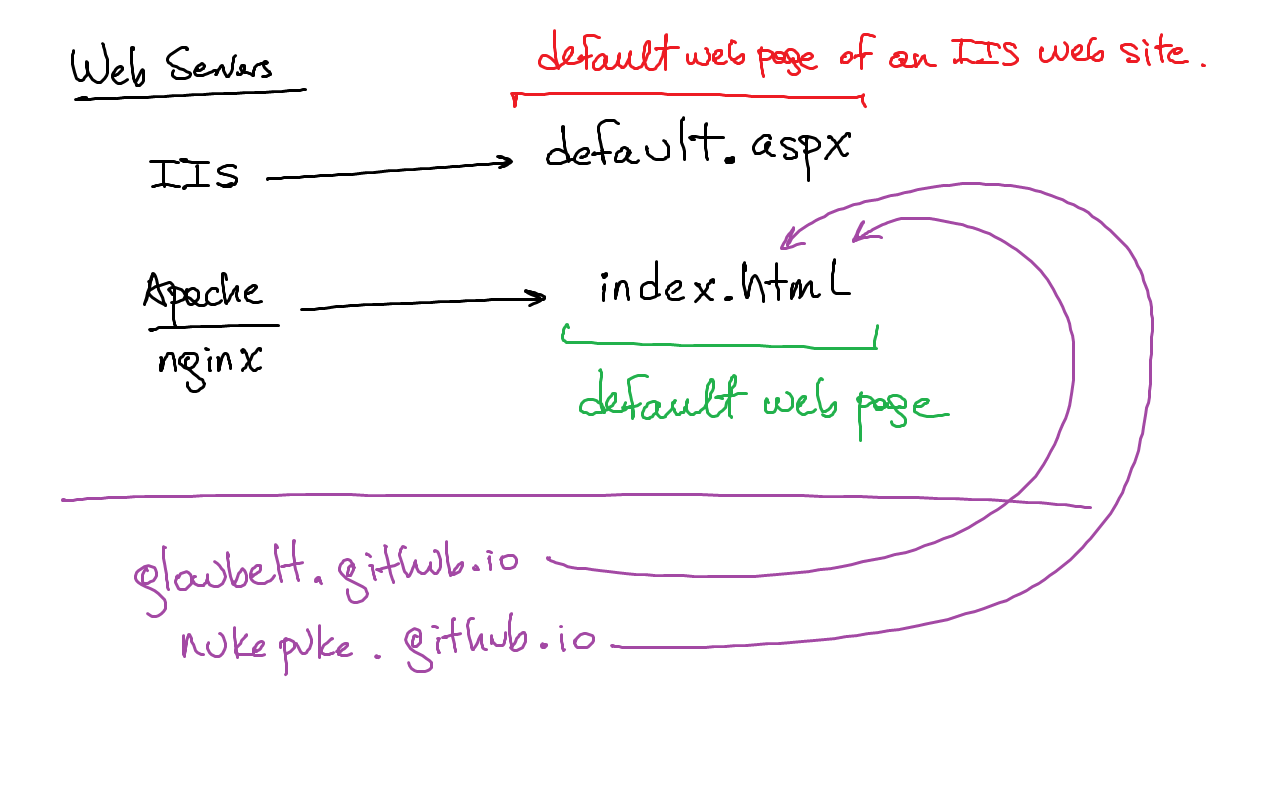 Web Servers
default web page of an IIS web site.
IIS
default.aspx
Apache
index.html
nginx
default web page
glowbett.github.io
nukepuke.github.io